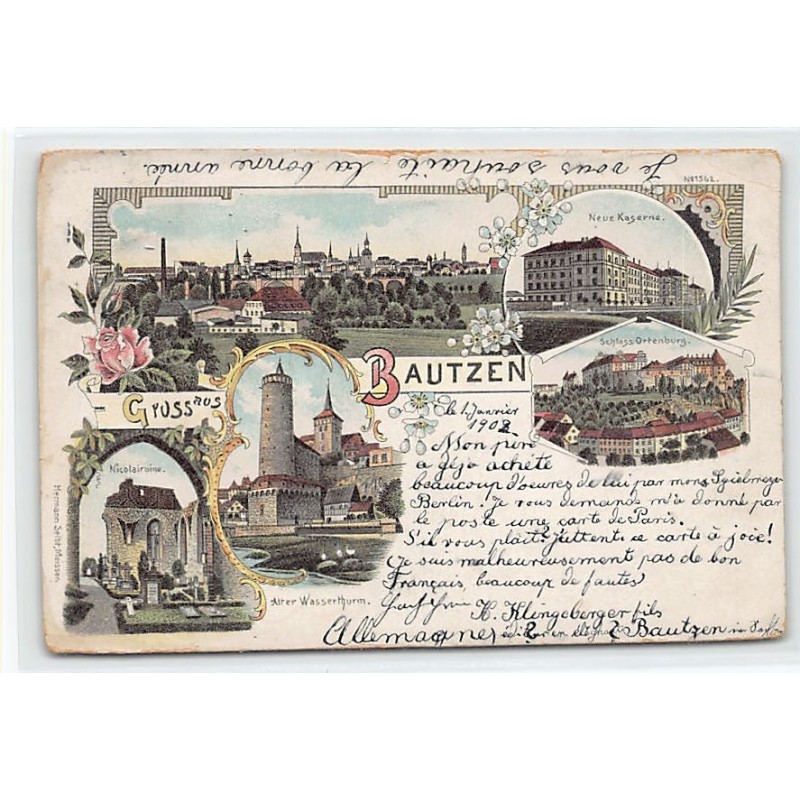 Je vous souhaite la bonne année.
No 1542.
Neue Kaserne.
Schloss Ortenburg.
Gruss aus
BAUTZEN
Nicolairuine.
Alter Wasserthurm.
Hermann Seibt, Meissen.
le 1. Janvier
1902
Mon père
a déjà acheté
beaucoup d'oeuvres de lui par mons.
Berlin. Je vous demande m'a donné par
le poste une carte de Paris.
S'il vous plaît! J'attent ce carte à joie!
Je suis malheureusement pas de bon
Français, beaucoup de fautes
H. Klingeberger fils
Allemagne Bautzen